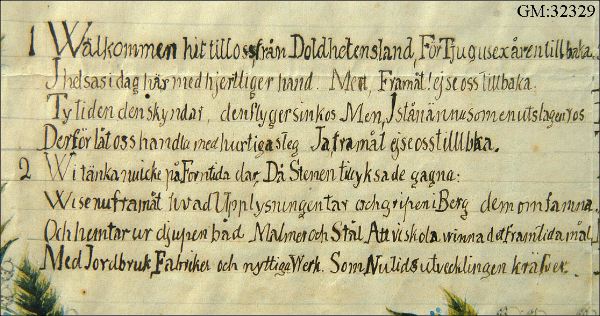 GM:32329
1 Wälkommen hit till oss från Doldhetensland, För Tjugusex åren tillbaka.
I helsas i dag här med hjertliger hand. Men, Framåt! ej se oss tillbaka.
Ty tiden den skyndar, den flyger sin kos Men, I stån ännu som en utslagen ros
Derför låt oss handla med hurtiga steg Ja, framåt ej se oss tilllbka.
2 Wi tänka wäcke på Forntida dar, Då Stenen till yksa de gagna:
Wi se nu framåt hvad Upplysningen tar och gripen i Berg dem omfamna.
Och hemtar ur djupen båd Malmer och Stål Att vi skola vinna det framtida mål,
Med Jordbruk, Fabriker och nyttiga Werk. Som Nutids utvecklingen kräfver.